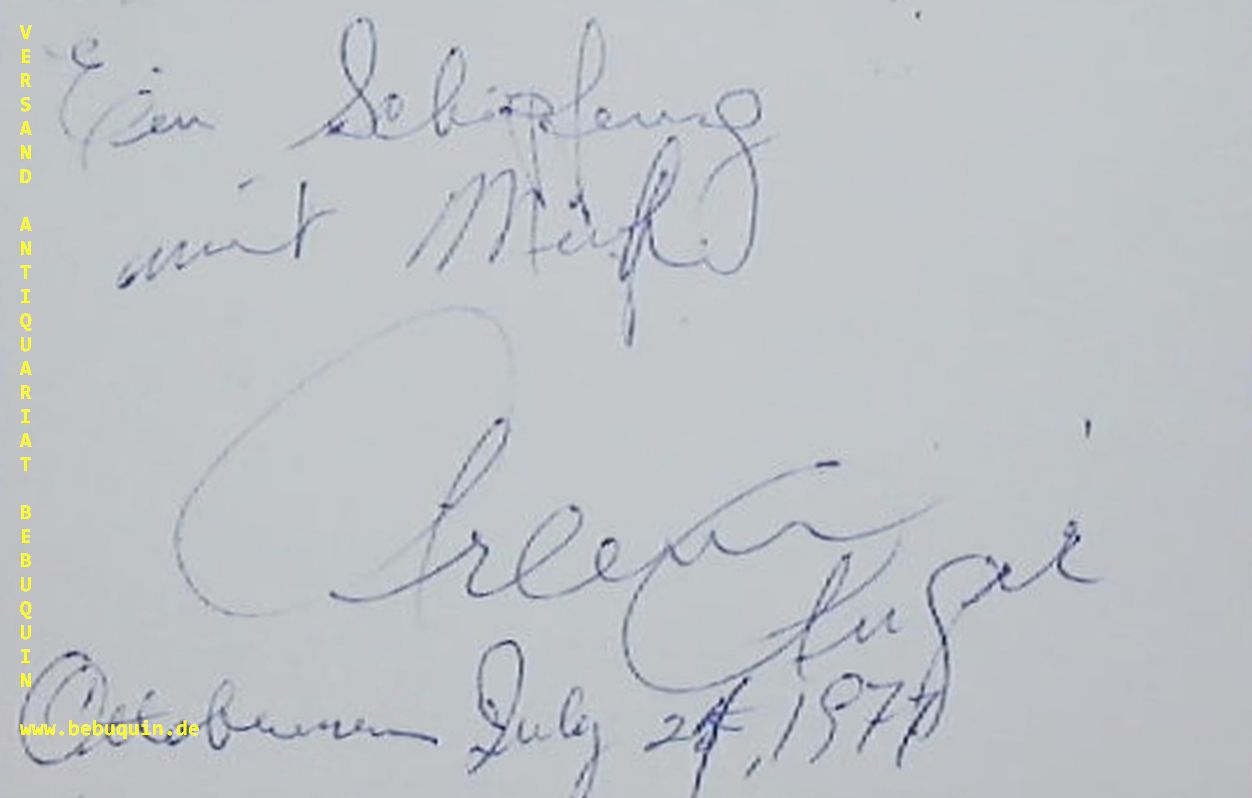 VERSAND ANTIQUARIAT BEBUQUIN
Ein Schöpfung
mit
Arleen Auger
Ottobeuren July 24, 1977
www.bebuquin.de